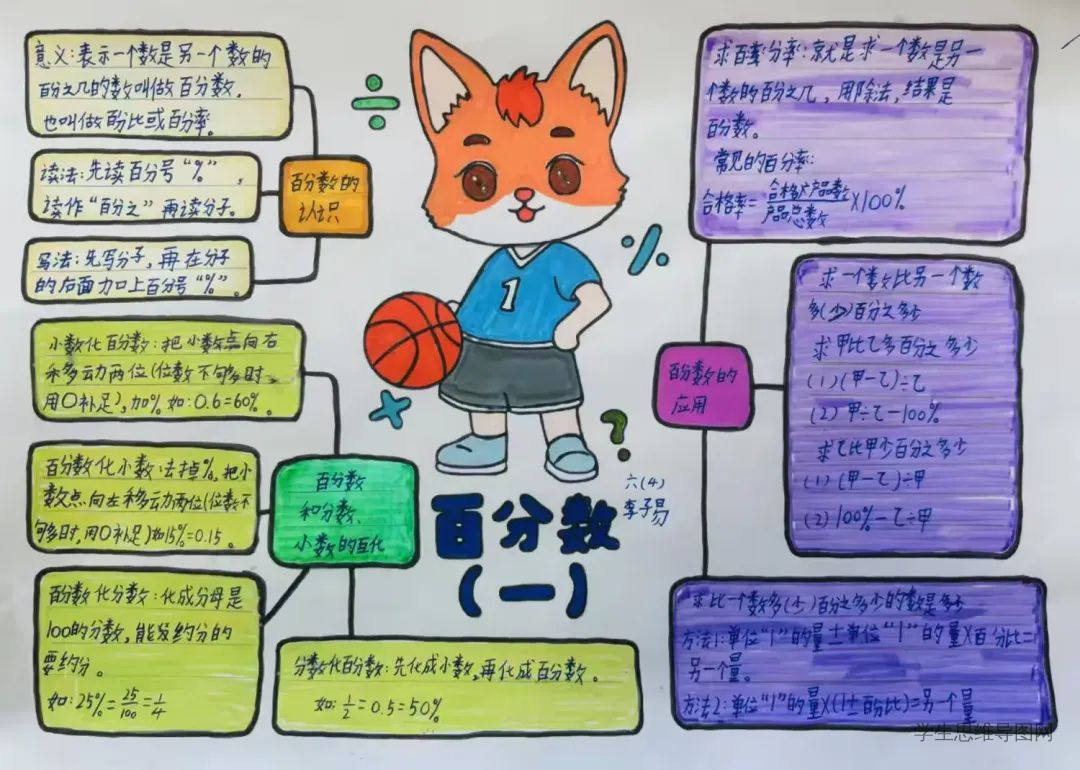 意义：表示一个数是另一个数的
百分之几的数叫做百分数，
也叫做百分比或百分率。
读法：先读百分号“%”，
读作“百分之”再读分子。
写法：先写分子，再在分子
的后面加上百分号“%”。
百分数的
认识
小数化百分数：把小数点向右
移动两位（位数不够时，
用0补足），加%。如：0.6=60%。
百分数化小数：去掉%，把小
数点向左移动两位（位数不
够时，用0补足）如15%=0.15。
百分数化分数：化成分母是
100的分数，能发约分的
要约分。
如：25%=25/100=1/4
分数化百分数：先化成小数，再化成百分数。
如：1/2=0.5=50%
百分数
和分数、
小数的互化
1
÷
%
×
?
六（4）
李子易
百分数
（一）
求百率分率：就是求一个数是另一
个数的百分之几，用除法，结果是
百分数。
常见的百分率：
合格率=合格产品数/产品总数×100%
百分数的
应用
求一个数比另一个数
多（少）百分之多少
求甲比乙多百分之多少
（1）（甲-乙）÷乙
（2）甲÷乙-100%
求乙比甲少百分之多少
（1）（甲-乙）÷甲
（2）100%-乙÷甲
求比一个数多（少）百分之多少的数是多少
方法1：单位“1”的量±单位“1”的量×百分比=
另一个量。
方法2：单位“1”的量×（1±百分比）=另一个量
学生思维导图网